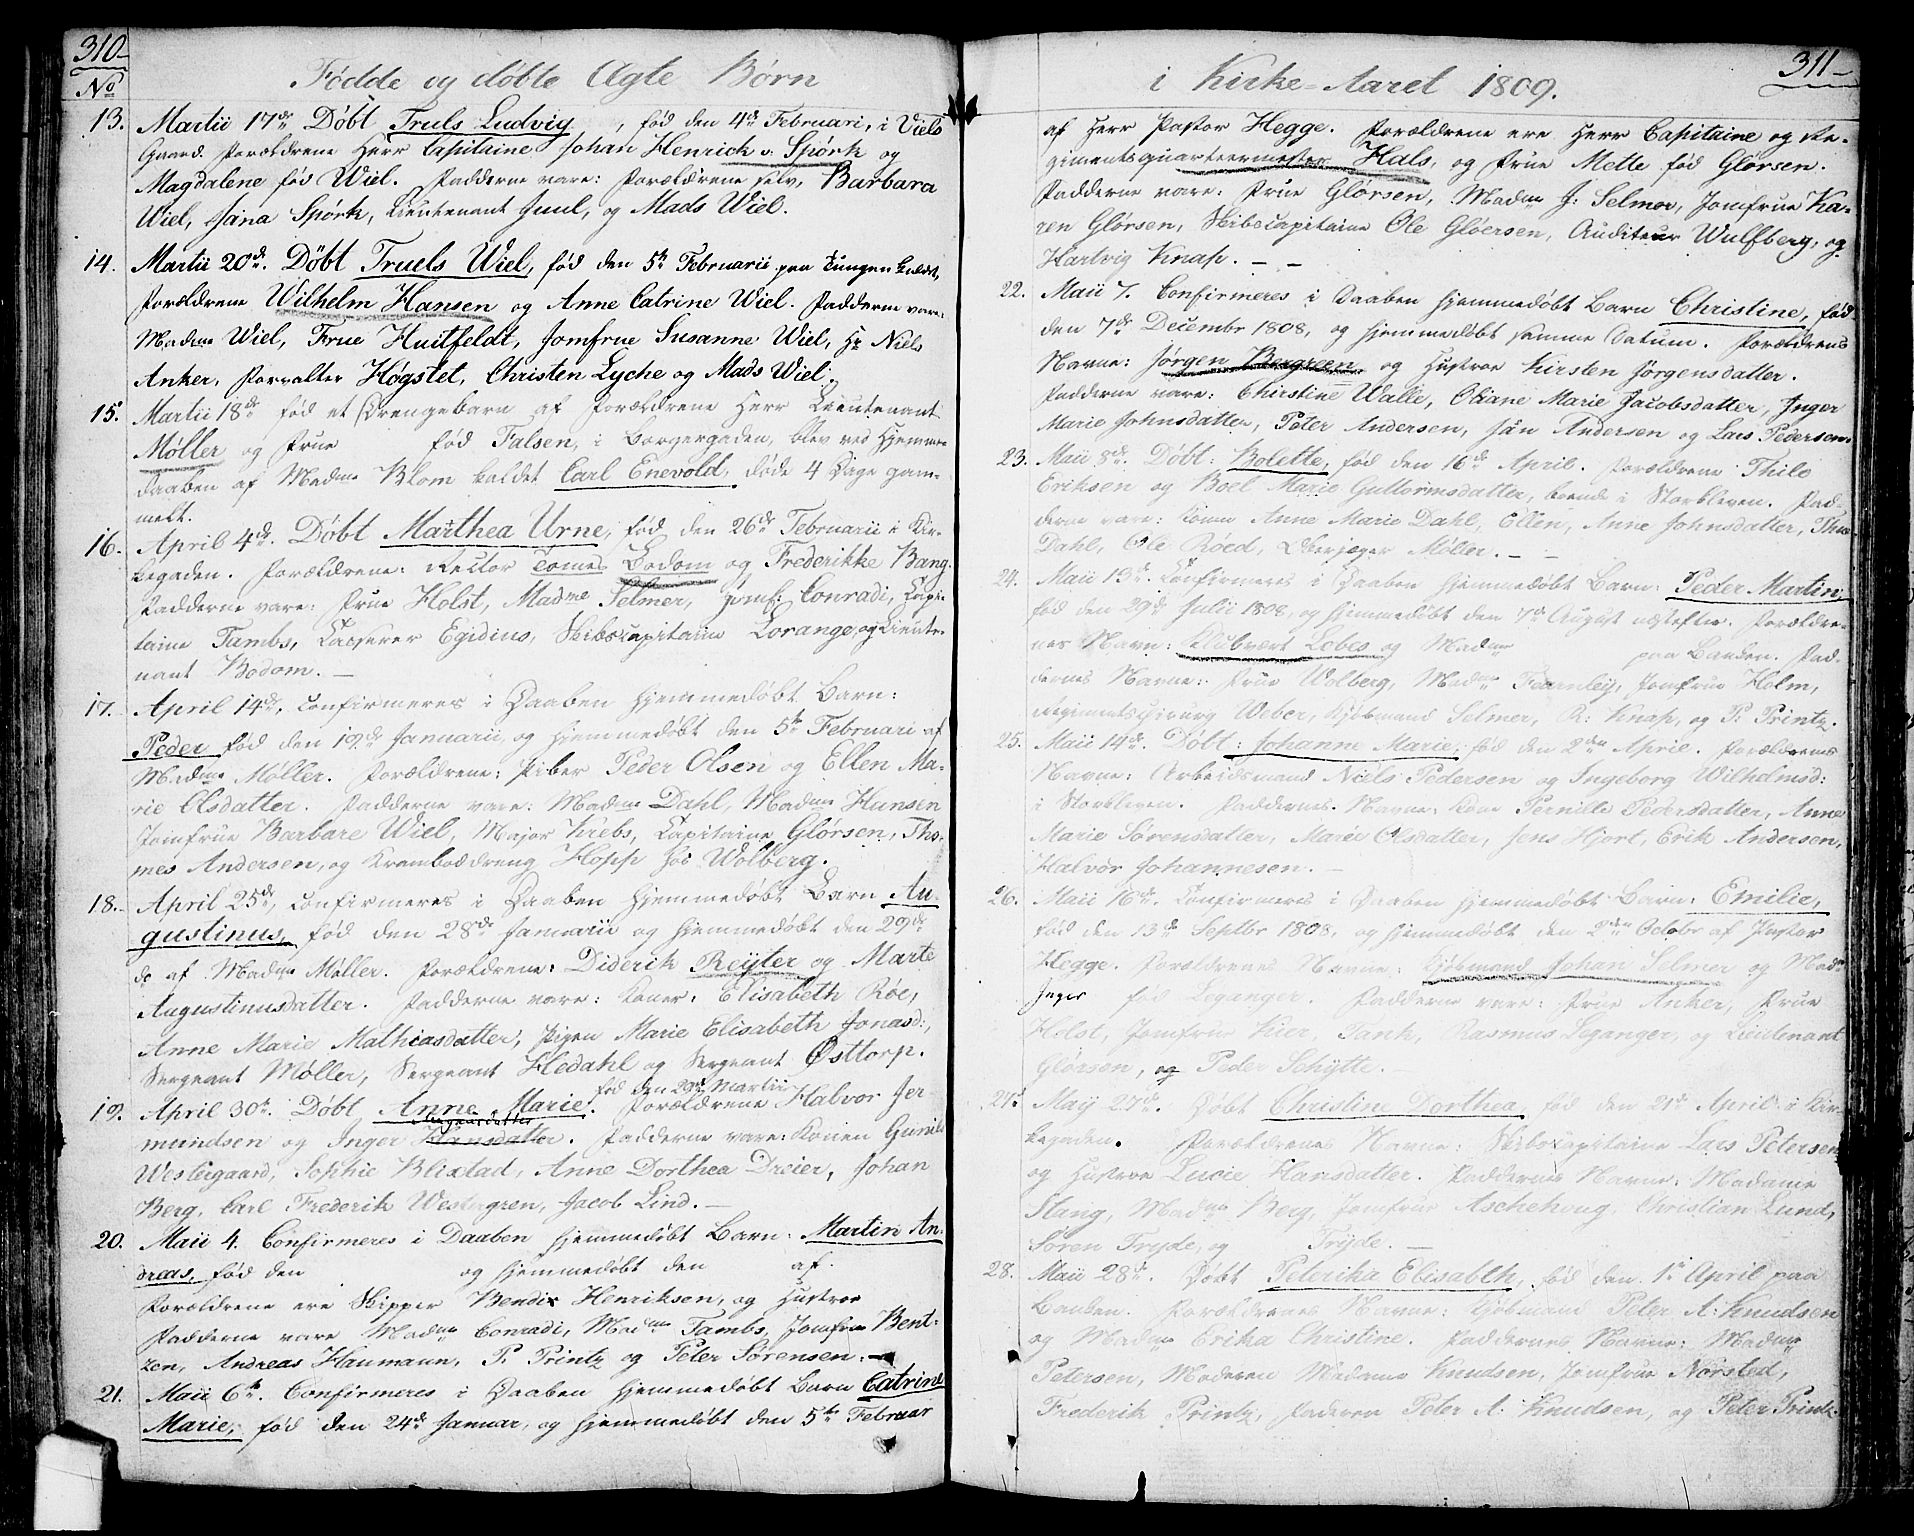 310
No
Fødde og døbte Ægte Børn
13. Martii 17de Døbt Truls Ludvig, fød den 4de Februari, i Viels
Gaard. Forældrene Herr Capitaine Johan Henrich v. Spørk og
Magdalene fød Wiel. Fadderne vare: Forældrene selv, Barbara
Wiel, Jana Spørk, Lieutenant Juul, og Mads Wiel.
14. Martii 20de. Døbt Truels Wiel, fød den 5te Februarii paa Tungen kaldt,
Forældrene Wilhelm Hansen og Anne Catrine Wiel. Fadderne vare:
Madme Wiel, Frue Huitfeldt, Jomfrue Susanne Wiel, Hr Niels
Anker, Forvalter Høgstet, Christen Lyche og Mads Wiel.
15. Martii 18de fød et Drengebarn af Forældrene Herr Lieutenant
Møller og Frue fød Falsen, i Borgergaden, blev ved Hjemme-
daaben af Madme Blom kaldet Carl Enevold, døde 4 Dage gam-
melt.
16. April 4de. Døbt Marthea Urne, fød den 26de Februarii i Kir-
kegaden. Forældrene: Rector Tomes Bodom og Frederikke Bang.
Fadderne vare: Frue Holst, Madme Selmer, Jomf: Conradi, Capi-
taine Tambs, Casserer Egidius, Skibscapitaine Lorange, og Lieute-
nant Bodom. —
17. April 14de, Confirmeres i Daaben hjemmedøbt Barn:
Peder fød den 19de Januarii, og hjemmedøbt den 5te Februari af
Madme Møller. Forældrene: Piber Peder Olsen og Ellen Ma-
rie Olsdatter. Fadderne vare: Madme Dahl, Madme Hansen
Jomfrue Barbare Wiel, Major Krebs, Capitaine Glørsen, Tho-
mes Andersen, og Kramboddreng Hopp hos Wolberg.
18. April 25de, Confirmeres i Daaben hjemmedøbt Barn Au-
gustinus, fød den 28de Januarii og hjemmedøbt den 29de
do af Madme Møller. Forældrene: Diderik Reyter og Marte
Augustinusdatter. Fadderne vare: Koner: Elisabeth Røe,
Anne Marie Mathiasdatter, Pigen Marie Elisabeth Jonasd:,
Sergeant Møller, Sergeant Hedahl og Sergeant Østtorp.
fød den 29de Martii
19. April 30te. Døbt Anne Marie. Forældrene Halvor Jer-
mundsen og Inger Hansdatter. Fadderne vare: Konen Gunild
Westergaard, Sophie Blixtad, Anne Dorthea Dreier, Johan
Berg, Carl Frederik Westergren, Jacob Lind. —
20. Maii 4. Confirmeres i Daaben hjemmedøbt Barn: Martin An-
dreas, fød den og hjemmedøbt den af.
Forældrene ere Skipper Bendix Henriksen, og Hustroe
Fadderne vare Madme Conradi, Madme Tambs, Jomfrue Bent-
zen, Andreas Haumann, P. Printz og Peter Sørensen: —
21. Maii 6te. Confirmeres i Daaben hjemmedøbt Barn Catrine
Marie, fød den 24de Januar, og hjemmedøbt den 5te Februar
311
i Kirke-Aaret 1809.
af Herr Pastor Hegge. Forældrene ere Herr Capitaine og Re-
gimentsquarteermester Hals, og Frue Mette fød Glørsen.
Fadderne vare: Frue Glørsen, Madme J: Selmer, Jomfrue Ka-
ren Glørsen, Skibscapitaine Ole Gløersen, Auditeur Wulfberg, og
Hartvig Knap. — —
22. Maii 7. Confirmeres i Daaben hjemmedøbt Barn Christine, fød
den 7de Decembr 1808, og hjemmedøbt samme Datum. Forældrens
Navne: Jørgen Bergreen og Hustroe Kirsten Jørgensdatter.
Fadderne vare: Christine Walle, Oliane Marie Jacobsdatter, Inger
Marie Johnsdatter, Peter Andersen, Jän Andersen og Lars Pedersen.
23. Maii 8de. Døbt: Bolette, fød den 16de April. Forældrene Thilo
Eriksen og Boel Marie Guttormsdatter, boende i Storkleven. Fad-
derne vare: Kone Anne Marie Dahl, Ellen, Anne Johnsdatter, Thos
Dahl, Ole Røed, Oberjæger Møller. — —
24. Maii 13de. Confirmeres i Daaben hjemmedøbt Barn: Peder Martin,
fød den 29de Julii 1808, og hjemmedøbt den 7de August næstefter. Forældre-
nes Navn: Klubvært Lobes og Madme paa Banken. Fad-
dernes Navne: Frue Wolberg, Madme Fearnley, Jomfrue Holm,
Regimentschirurg Weber, Kjøbmand Selmer, R: Knap, og P. Printz.
25. Maii 14de. Døbt: Johanne Marie, fød den 2den April. Forældrens
Navne: Arbeidsmand Niels Pedersen og Ingeborg Wilhelmsd:
i Storkleven. Faddernes Navne: Kone Pernille Pedersdatter, Anne
Marie Sørensdatter, Marie Olsdatter, Jens Hjort, Erik Andersen,
Halvor Johannesen. —
26. Maii 16de. Confirmeres i Daaben hjemmedøbt Barn: Emilie,
fød den 13de Septbr 1808, og hjemmedøbt den 2den Octobr af Pastor
Hegge. Forældrenes Navne: Kjøbmand Johan Selmer og Madme
Inger fød Leganger. Fadderne vare: Frue Anker, Frue
Holst, Jomfrue Kier, Tank, Rasmus Leganger, og Lieutenant
Glørsen, og Peder Schytte. —
27. Maij 27de. Døbt Christine Dorthea, fød den 21de April i Kir-
kegaden. Forældrenes Navne: Skibscapitaine Lars Petersen
og Hustroe Lucie Hansdatter. Faddernes Navne: Madame
Stang, Madme Berg, Jomfrue Aschehoug, Christian Lund,
Søren Tryde, og Tryde. —
28. Maii 28de. Døbt Peterika Elisabeth, fød den 1te April paa
Banken. Forældrenes Navne: Kjøbmand Peter A: Knudsen
og Madme Erika Christine. Faddernes Navne: Madme
Petersen, Moderen Madame Knudsen, Jomfrue Norsted,
Frederik Printz, Faderen Peter A. Knudsen, og Peter Printz.